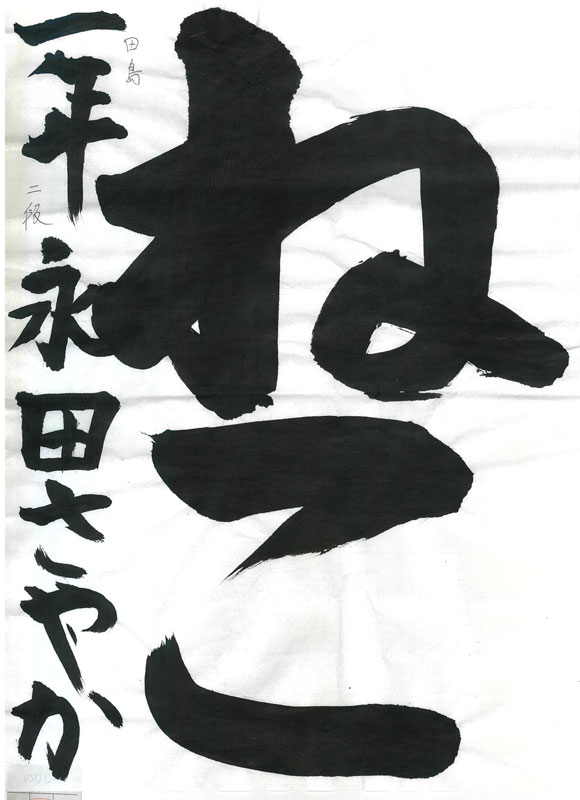 ねこ
一年 永田さやか
田島
二段